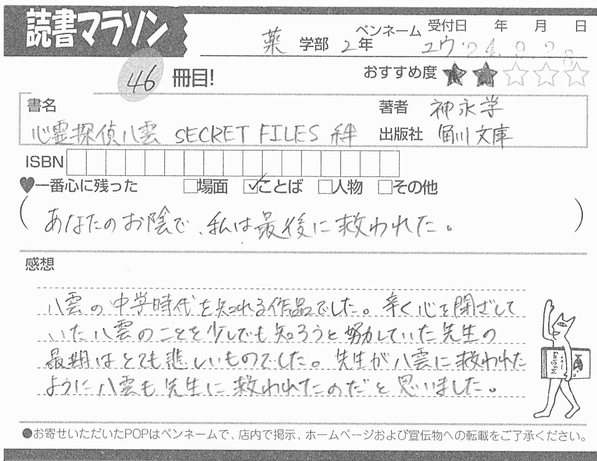 読書マラソン
薬 学部 2年 ペンネーム ユウ 受付日 年 月 日
46 冊目! おすすめ度 ★★☆☆☆
書名 著者 神永学
心霊探偵八雲 SECRET FILES 絆 出版社 角川文庫
ISBN
♥一番心に残った □場面 ☑ことば □人物 □その他
(あなたのお陰で、私は最後に救われた。)
感想
八雲の中学時代を知れる作品でした。辛く心を閉ざして
いた八雲のことを少しでも知ろうと努力していた先生の
最期はとても悲しいものでした。先生が八雲に救われた
ように八雲も先生に救われてたのだと思いました。
●お寄せいただいたPOPはペンネームで、店内で掲示、ホームページおよび宣伝物への転載をご了承ください。